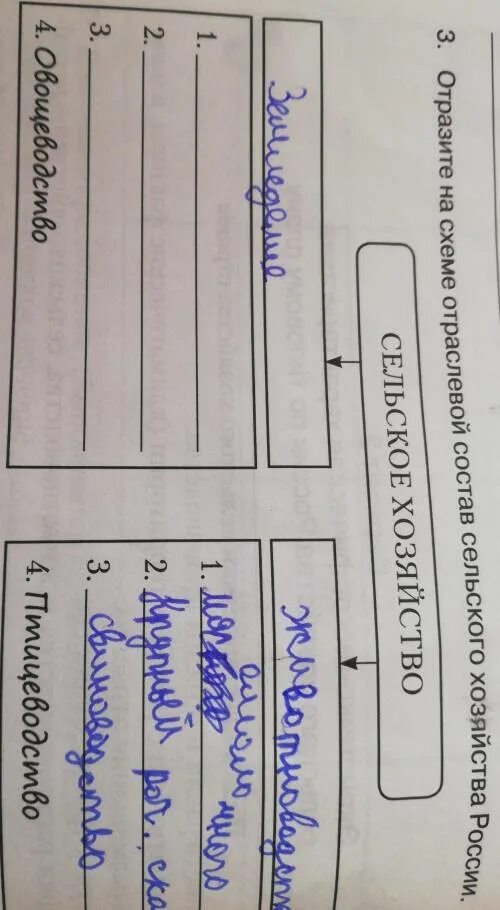 3. Отразите на схеме отраслевой состав сельского хозяйства России.
СЕЛЬСКОЕ ХОЗЯЙСТВО
Земледелие
1.
2.
3.
4. Овощеводство
животноводст
1. много
2. Крупный рог. ско
3. свиноводство
4. Птицеводство